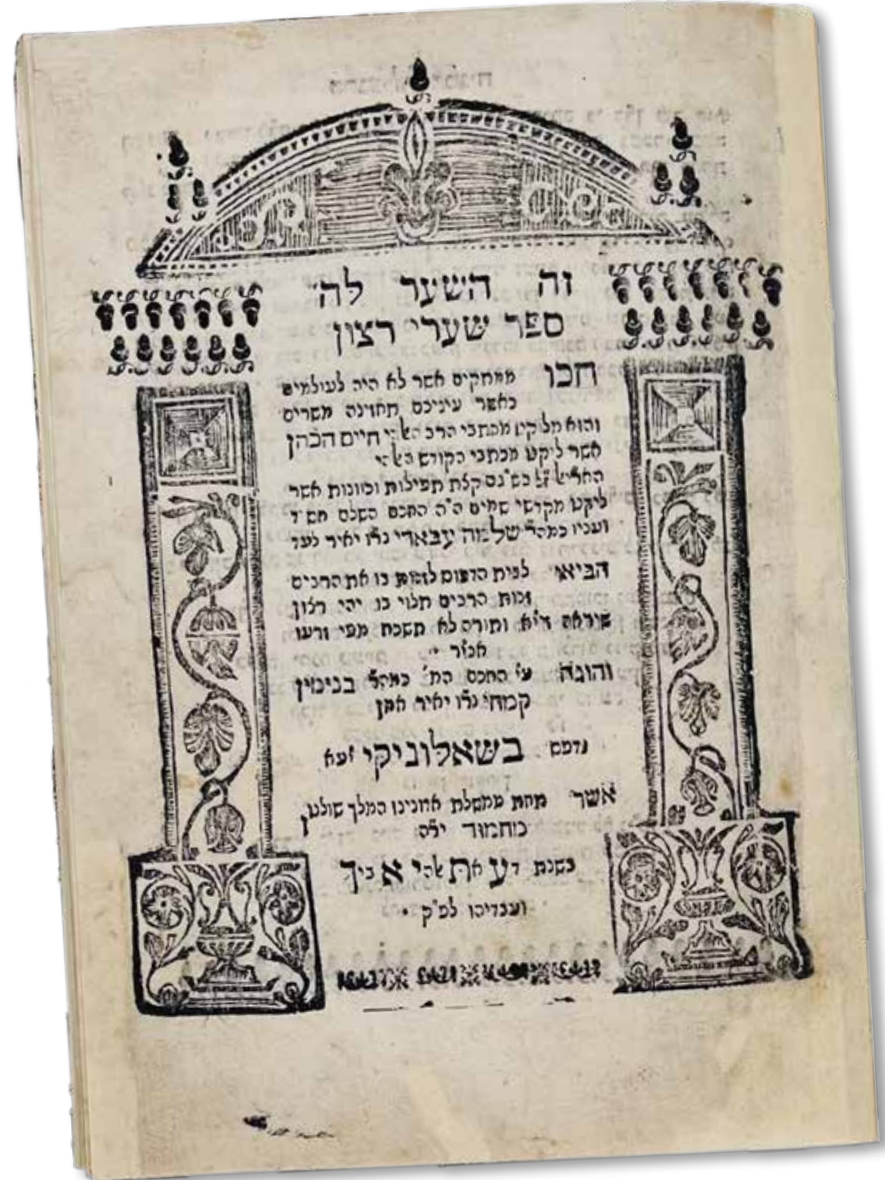 זה השער לה'
ספר שערי רצון
חכו ממתקים אשר לא היה לעולמים
כאשר עיניכם תחזינה משרים
והוא מלוקט מכתבי הרב האלהי חיים הכהן
אשר ליקט מכתבי הקודש האלהי
האר"י ז"ל קצת תפילות וכוונות אשר
ליקט מקדשי שמים ה"ה החכם השלם
ועניו כמה"ר שלמה עבאדי נר"ו יאיר לעד
הביאו לבית הדפוס לזכות בו את הרבים
זכות הרבים תלוי בו יהי רצון
ותורה לא תשכח מפי זרעו
והוגה ע"י החכם הת' כמה"ר בנימין
קמחי נר"ו יאיר אמן
נדפס בשאלוניקי יע"א
אשר תחת ממשלת אדוננו המלך שולטן
מחמוד יר"ה
בשנת דע את אלהי אביך
ועבדיהו לפ"ק